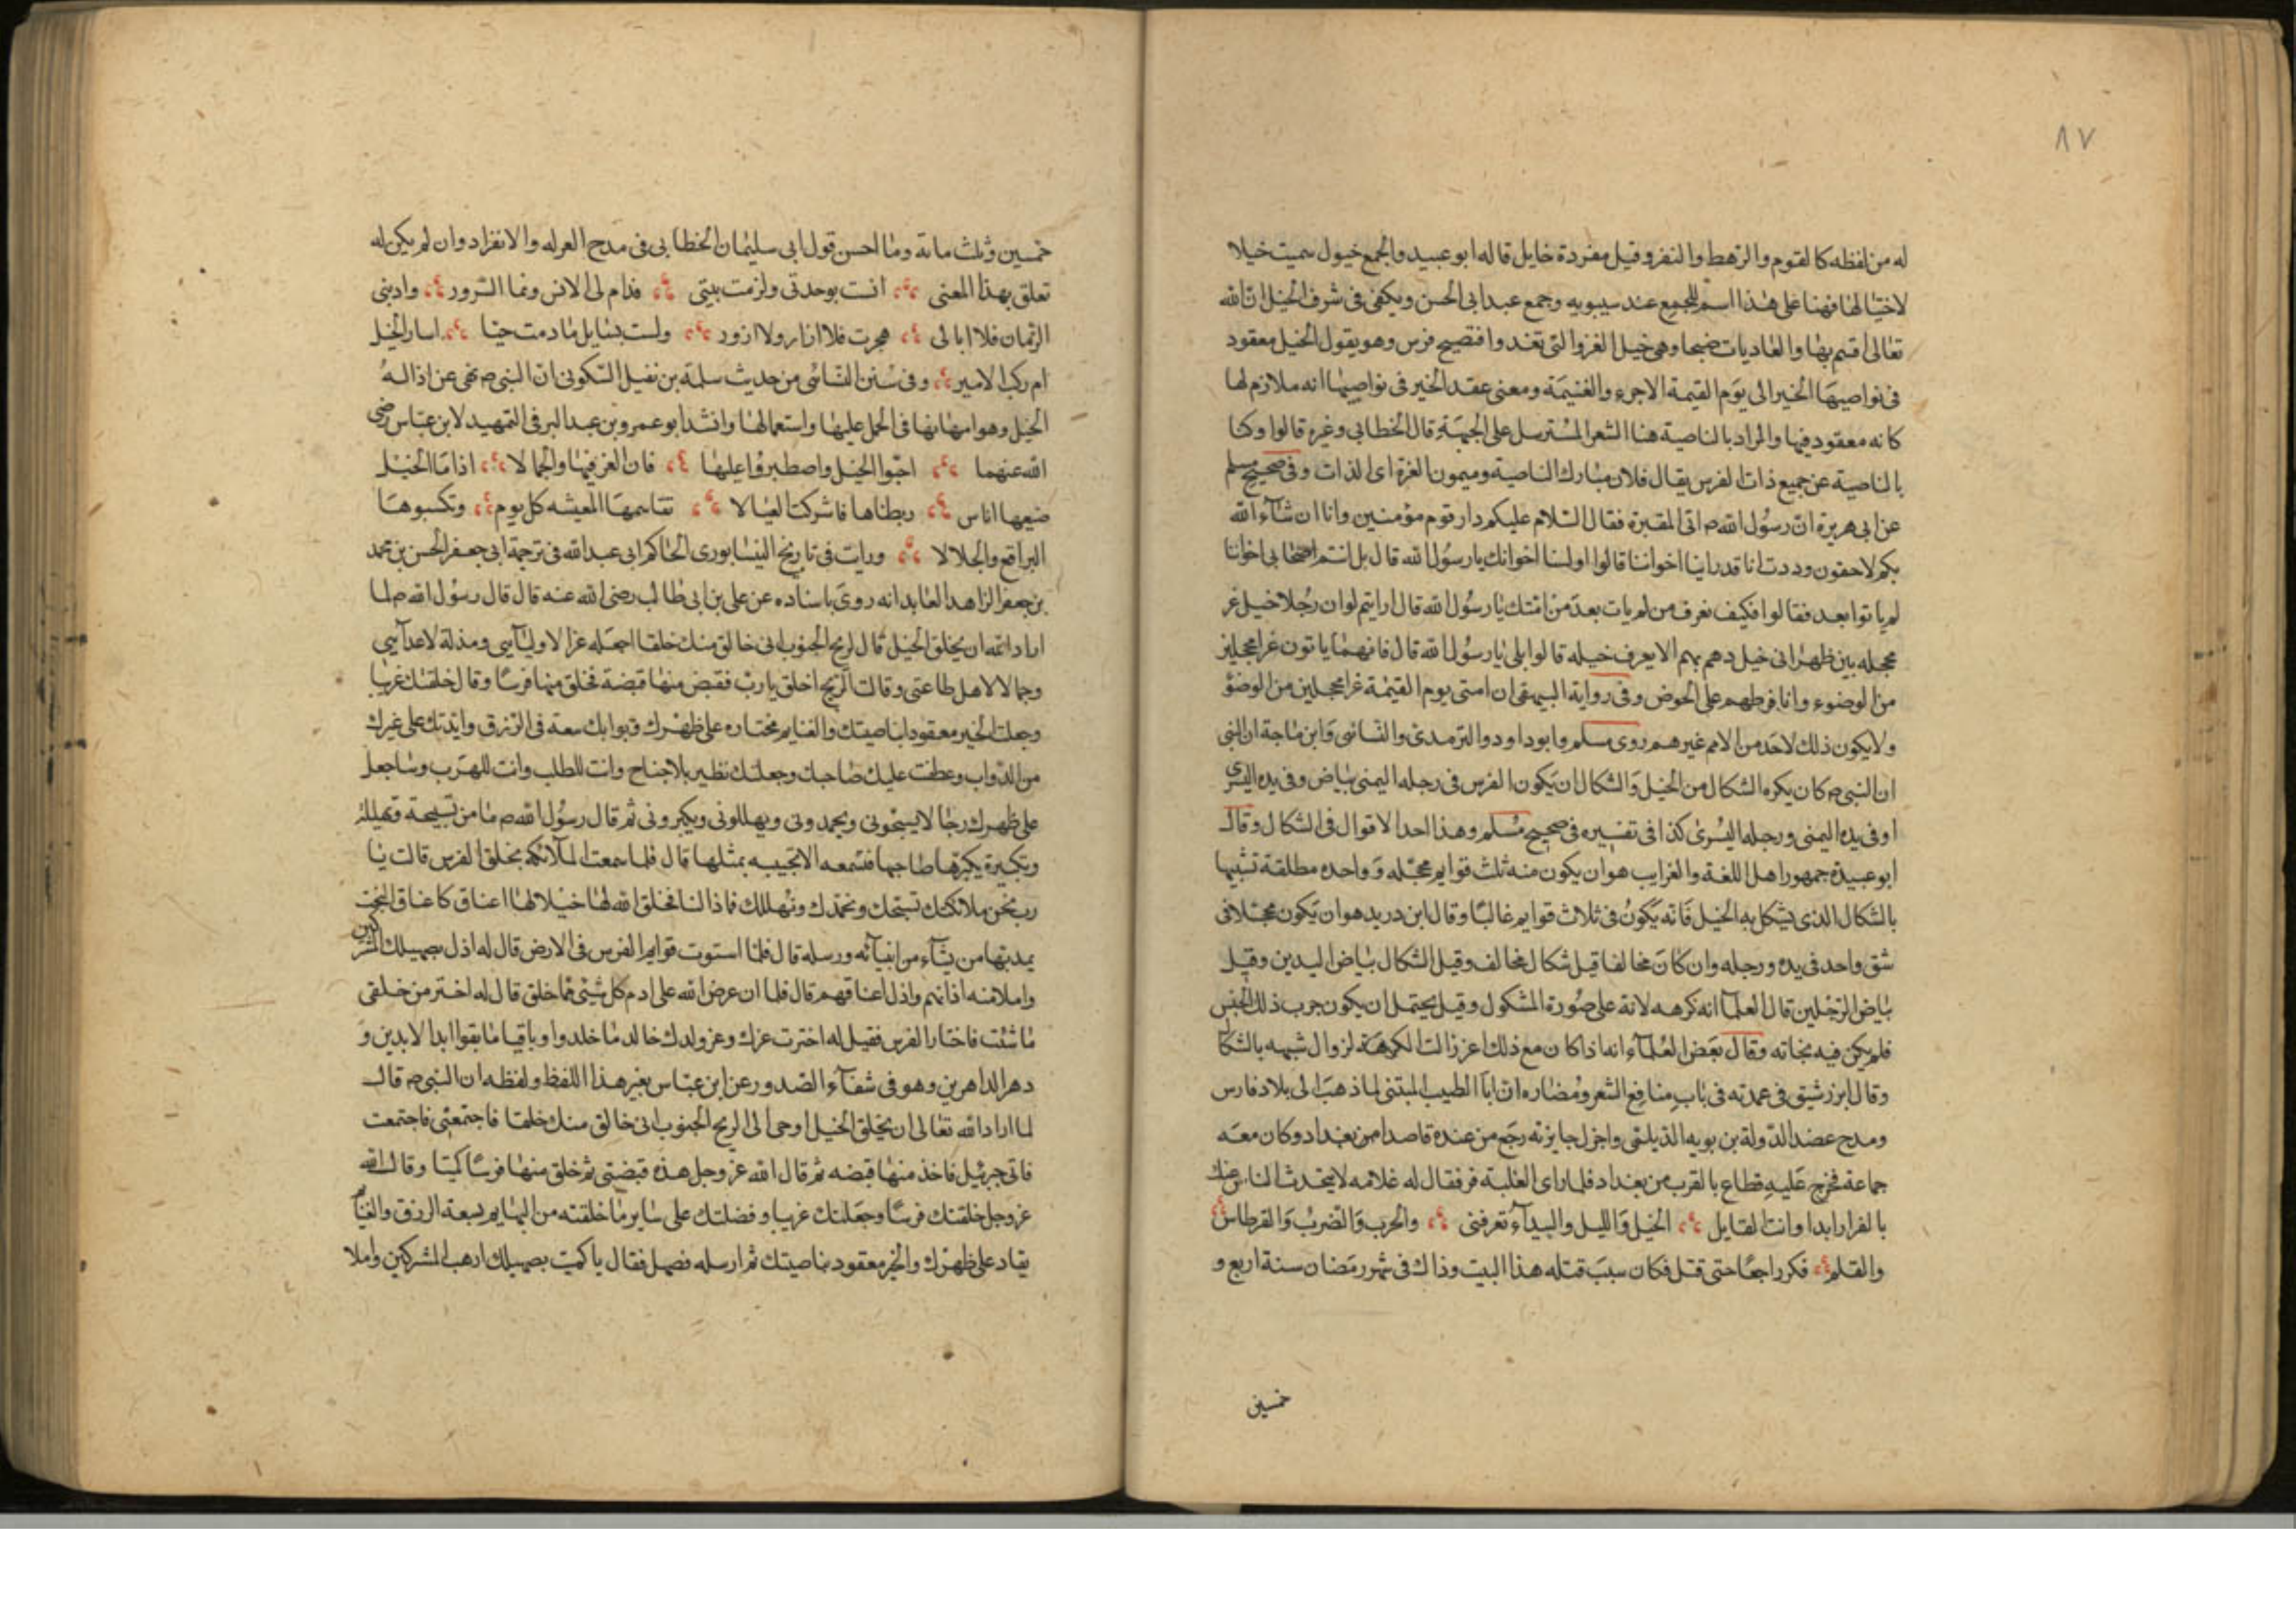 ٨٧
له من لفظه كالقوم والرهط والنفر وقيل مفردة خايل قاله ابو عبيد والجمع خيول سميت خيلا
لاختيالها فهنا على هذا اسم للجمع عند سيبويه وجمع عند ابى الحسن ويكفى فى شرف الخيل ان الله
تعالى اقسم بها والعاديات ضبحا وهى خيل الغزو التى تغدوا فتصبح فرس وهو يقول الخيل معقود
فى نواصيها الخير الى يوم القيمة الاجر والغنيمة ومعنى عقد الخير فى نواصيها انه ملازم لها
كانه معقود فيها والمراد بالناصية هنا الشعر المسترسل على الجبهة قال الخطابى وغيره قالوا وكنا
بالناصية عن جميع ذات الفرس يقال فلان مبارك الناصية وميمون الغرة اى الذات وفى صحيح مسلم
عن ابى هريرة ان رسول الله ص اتى المقبرة فقال السلام عليكم دار قوم مؤمنين وانا ان شآء الله
بكم لاحقون وددت انا قد راينا اخواننا قالوا اولسنا اخوانك يارسول الله قال بل انتم اصحابى اخواننا
لم ياتوا بعد فقالوا فكيف نعرف من لم يات بعد من امتك يارسول الله قال ارايتم لو ان رجلا خيل غر
محجله بين ظهرانى خيل دهم بهم الا يعرف خيله قالوا بلى يارسول الله قال فانهم ياتون غرا محجلين
من الوضوء وانا فرطهم على الحوض وفى رواية البيهقى ان امتى يوم القيمة غرا محجلين من الوضؤ
ولا يكون ذلك لاحد من الامم غيرهم روى مسلم وابو داود والترمدى والنسائى وابن ماجة ان النبى
ان النبى ص كان يكره الشكال من الخيل والشكال ان يكون الفرس فى رجله اليمنى بياض وفى يده اليسرى
او فى يده اليمنى ورجله اليسرى كذا فى تفسيره فى صحيح مسلم وهذا احد الاقوال فى الشكال وقال
ابو عبيدة جمهور اهل اللغة والغرايب هو ان يكون منه ثلث قوايم محجله وواحده مطلقة تشبيها
بالشكال الذى يشكل به الخيل فانه يكون فى ثلاث قوايم غالبا وقال ابن دريد هو ان يكون محجلا فى
شق واحد فى يده ورجله وان كان مخالفا قيل شكال مخالف وقيل الشكال بياض اليدين وقيل
بياض الرجلين قال العلمآ انه كرهه لانه على صورة المشكول وقيل يحتمل ان يكون جرب ذلك الجنس
فلم يكن فيه نجابه وقال بعض العلمآء انه اذا كان مع ذلك اغر زالت الكرهة لزوال شبهه بالشكال
وقال ابن رشيق فى عمدته فى باب منافع الشعر ومضاره ان ابا الطيب المتبنى لما ذهب الى بلاد فارس
ومدح عضد الدولة بن بويه الديلمى واجزل جايزته رجع من عنده قاصدا من بغداد وكان معه
جماعة فخرج عليه قطاع بالقرب من بغداد فلما راى الغلبة فر فقال له غلامه لا يتحدث الناس عنك
بالفرار ابدا وانت القايل الخيل والليل والبيدآء تعرفنى والحرب والضرب والقرطاس
والقلم فكر راجعا حتى قتل فكان سبب قتله هذا البيت وذاك فى شهر رمضان سنة اربع و
خمسين
خمسين وثلث مائة وما احسن قول ابى سليمان الخطابى فى مدح العزله والانفراد وان لم يكن له
تعلق بهذا المعنى انست بوحدتى ولزمت بيتى فدام لى الانس ونما السرور وادبنى
الزمان فلا ابالى هجرت فلا ازار ولا ازور ولست بسايل ما دمت حيا اسار الخيل
ام ركب الامير وفى سنن النسائى من حديث سلمة بن نفيل السكونى ان النبى ص نهى عن اذالة
الخيل وهو امهانها فى الحمل عليها واستعمالها وانشد ابو عمرو بن عبد البر فى التمهيد لابن عباس رضى
الله عنهما احبوا الخيل واصطبروا عليها فان العز فيها والجمالا اذا ما الخيل
ضيعها اناس ربطناها فاشركت العيالا نقاسمها المعيشه كل يوم وتكسبوها
البراقع والجلالا ورايت فى تاريخ النيسابورى الحاكم ابى عبد الله فى ترجمة ابى جعفر الحسن بن محمد
بن جعفر الزاهد العابد انه روى باسناده عن على بن ابى طالب رضى الله عنه قال قال رسول الله ص لما
اراد الله ان يخلق الخيل قال لريح الجنوب انى خالق منك خلقا اجعله عزا لاوليآئى ومذلة لاعدآئى
وجمالا لاهل طاعتى وقالت الريح اخلق يارب فقبض منها قبضة فخلق منها فرسا وقال خلقتك عربيا
وجعلت الخير معقودا بناصيتك والغنايم محتازه على ظهرك وبوابك سعة فى الرزق وايدتك على غيرك
من الدواب وعطفت عليك صاحبك وجعلتك نظير بلا جناح وانت للطلب وانت للهرب وساجعل
على ظهرك رجالا يسبحونى ويحمدونى ويهللونى ويكبرونى ثم قال رسول الله ص ما من تسبيحة وتهليلة
وتكبيرة يكبرها صاحبها فتسمعه الا تجيبه بمثلها قال فلما سمعت الملآئكة بخلق الفرس قالت يا
رب نحن ملائكتك نسبحك ونحمدك ونهللك فماذا لنا فخلق الله لها خيلا لها اعناق كاعناق البخت
يمد بها من يشآء من انبيآئه ورسله قال فلما استوت قوايم الفرس فى الارض قال له اذل بصهيلك المشركين
واملا منه اذانهم واذل اعناقهم قال فلما ان عرض الله على ادم كل شيئى مما خلق قال له اختر من خلقى
ما شئت فاختار الفرس فقيل له اخترت عزك وعز ولدك خالد ما خلدوا وباقيا ما بقوا ابدا لابدين و
دهر الداهرين وهو فى شفآء الصدور عن ابن عباس بغير هذا اللفظ ولفظه ان النبى ص قال
لما اراد الله تعالى ان يخلق الخيل اوحى الى الريح الجنوب انى خالق منك خلقا فاجتمعتى فاجتمعت
فاتى جبرئيل فاخذ منها قبضه ثم قال الله عز وجل هذه قبضتى ثم خلق منها فرسا كميتا وقال الله
عز وجل خلقتك فرسا وجعلتك عربيا وفضلتك على ساير ما خلقته من البهايم بسعة الرزق والغنايم
يقاد على ظهرك والخير معقود بناصيتك ثم ارسله فصهل فقال يا كميت بصهيلك ارهب المشركين واملا